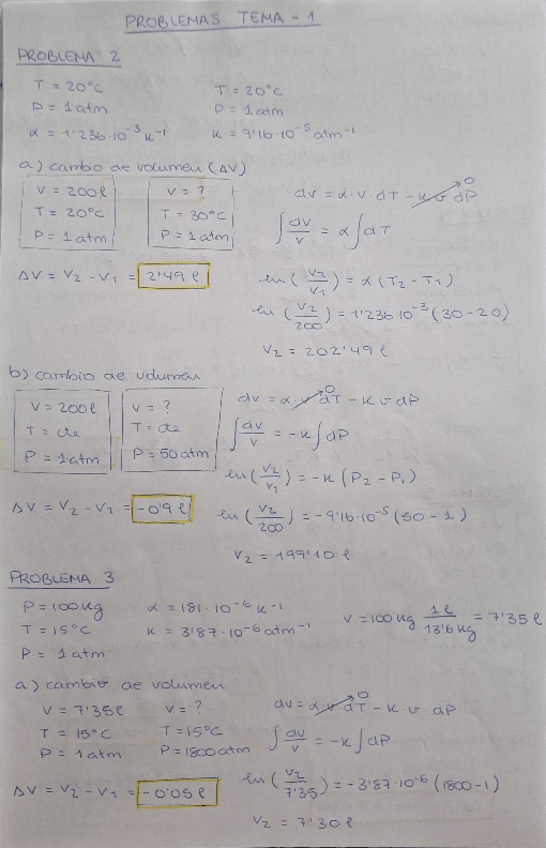 PROBLEMAS TEMA - 1
PROBLEMA 2
T = 20°C
P = 1 atm
α = 1'236·10⁻³ K⁻¹
T = 20°C
P = 1 atm
κ = 9'16·10⁻⁵ atm⁻¹
a) cambio de volumen (ΔV)
V = 200 ℓ
T = 20°C
P = 1 atm
V = ?
T = 30°C
P = 1 atm
dv = α·v·dT - κ v dP → 0
∫ dv/v = α ∫ dT
ΔV = V₂ - V₁ = 2'49 ℓ
ln (V₂/V₁) = α (T₂ - T₁)
ln (V₂/200) = 1'236·10⁻³ (30 - 20)
V₂ = 202'49 ℓ
b) cambio de volumen
V = 200 ℓ
T = cte
P = 1 atm
V = ?
T = cte
P = 50 atm
dv = α·v dT → 0 - κ v dP
∫ dv/v = -κ ∫ dP
ln (V₂/V₁) = -κ (P₂ - P₁)
ΔV = V₂ - V₁ = -0'9 ℓ
ln (V₂/200) = -9'16·10⁻⁵ (50 - 1)
V₂ = 199'10 ℓ
PROBLEMA 3
P = 100 Kg
T = 15°C
P = 1 atm
α = 181·10⁻⁶ K⁻¹
κ = 3'87·10⁻⁶ atm⁻¹
V = 100 Kg 1 ℓ/13'6 Kg = 7'35 ℓ
a) cambio de volumen
V = 7'35 ℓ
T = 15°C
P = 1 atm
V = ?
T = 15°C
P = 1800 atm
dv = α v dT → 0 - κ·v dP
∫ dv/v = -κ ∫ dP
ΔV = V₂ - V₁ = -0'05 ℓ
ln (V₂/7'35) = -3'87·10⁻⁶ (1800 - 1)
V₂ = 7'30 ℓ